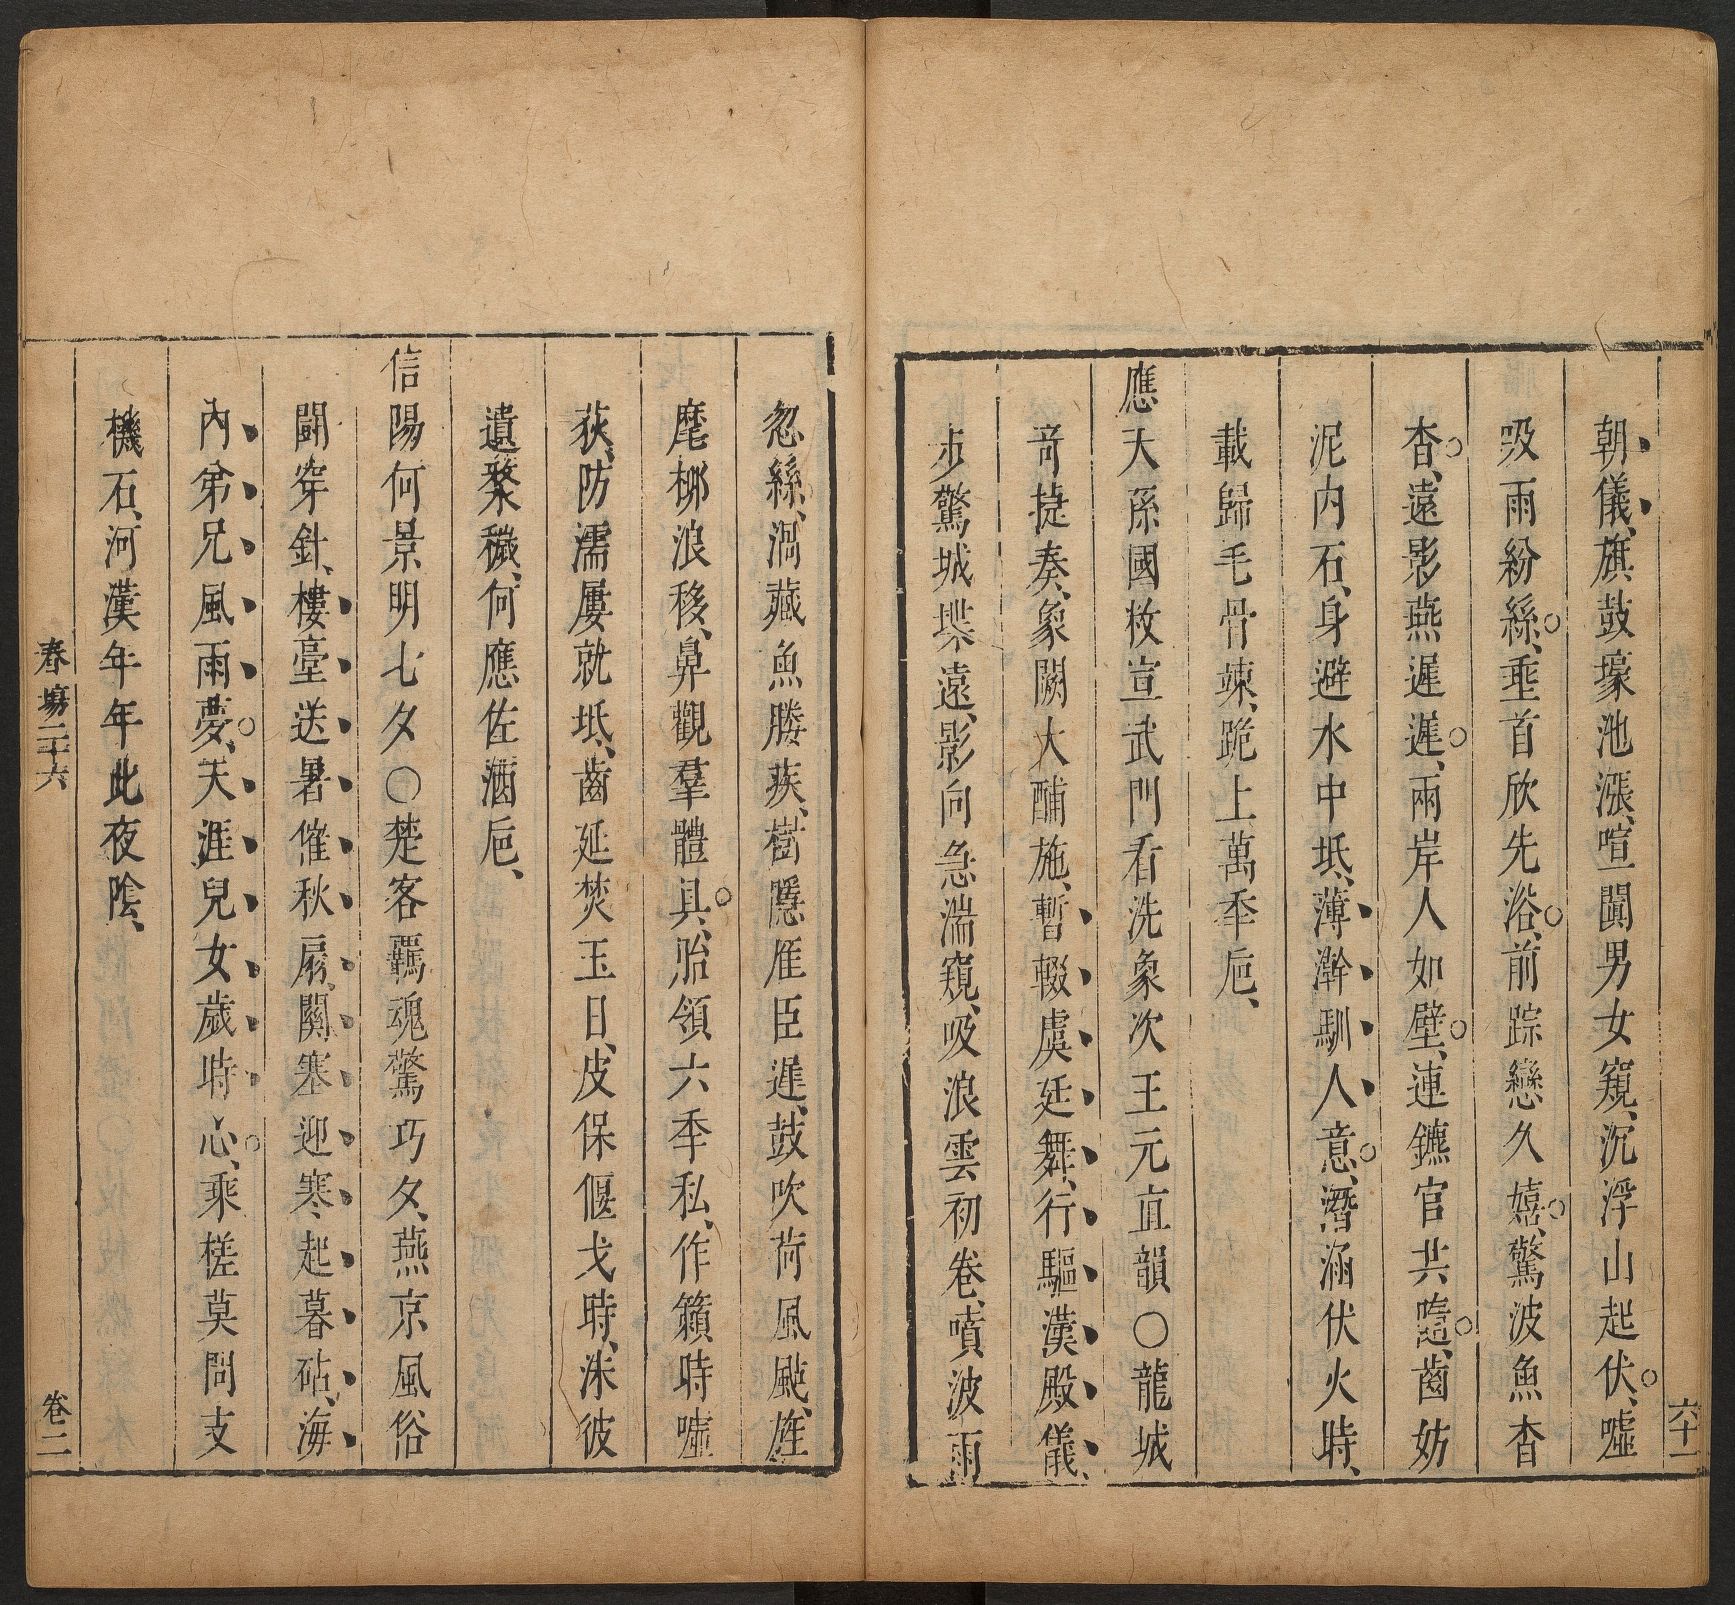 朝儀、旗鼓壕池漲、喧闐男女窺、沉浮山起伏、噓
吸雨紛絲、垂首欣先浴、前踪戀久嬉、驚波魚杳
杳、遠影燕遲遲、兩岸人如壁、連鑣官共隨、齒妨
泥内石、身避水中坻、薄澣馴人意、潛涵伏火時、
載歸毛骨竦、跪上萬年巵、
應天孫國敉宣武門看洗象次王元直韻○龍城
奇捷奏、象闕大酺施、暫輟虞廷舞、行驅漢殿儀、
步驚城堞遠、影向急湍窺、吸浪雲初卷、噴波雨
六十一
忽絲、渦藏魚媵疾、樹隱雁臣遲、鼓吹荷風颭、旌
麾柳浪移、鼻觀羣體具、胎領六年私、作籟時噓
荻、防濡屢就坻、齒延焚玉日、皮保偃戈時、洙彼
遺藂穢、何應佐酒巵、
信陽何景明七夕○楚客羈魂驚巧夕、燕京風俗
鬪穿針、樓臺送暑催秋扇、關塞迎寒起暮砧、海
内弟兄風雨夢、天涯兒女歲時心、乘槎莫問支
機石、河漢年年此夜陰、
春場二十六
卷二